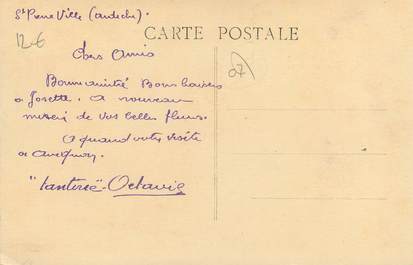 St Pierre Ville (Ardèche).
12-6
CARTE POSTALE
07
Chers Amis
Bonne amitié Bons baisers
a Josette. A nouveau
merci de vos belles fleurs.
A quand votre visite
a
"Tantine" - Octavie